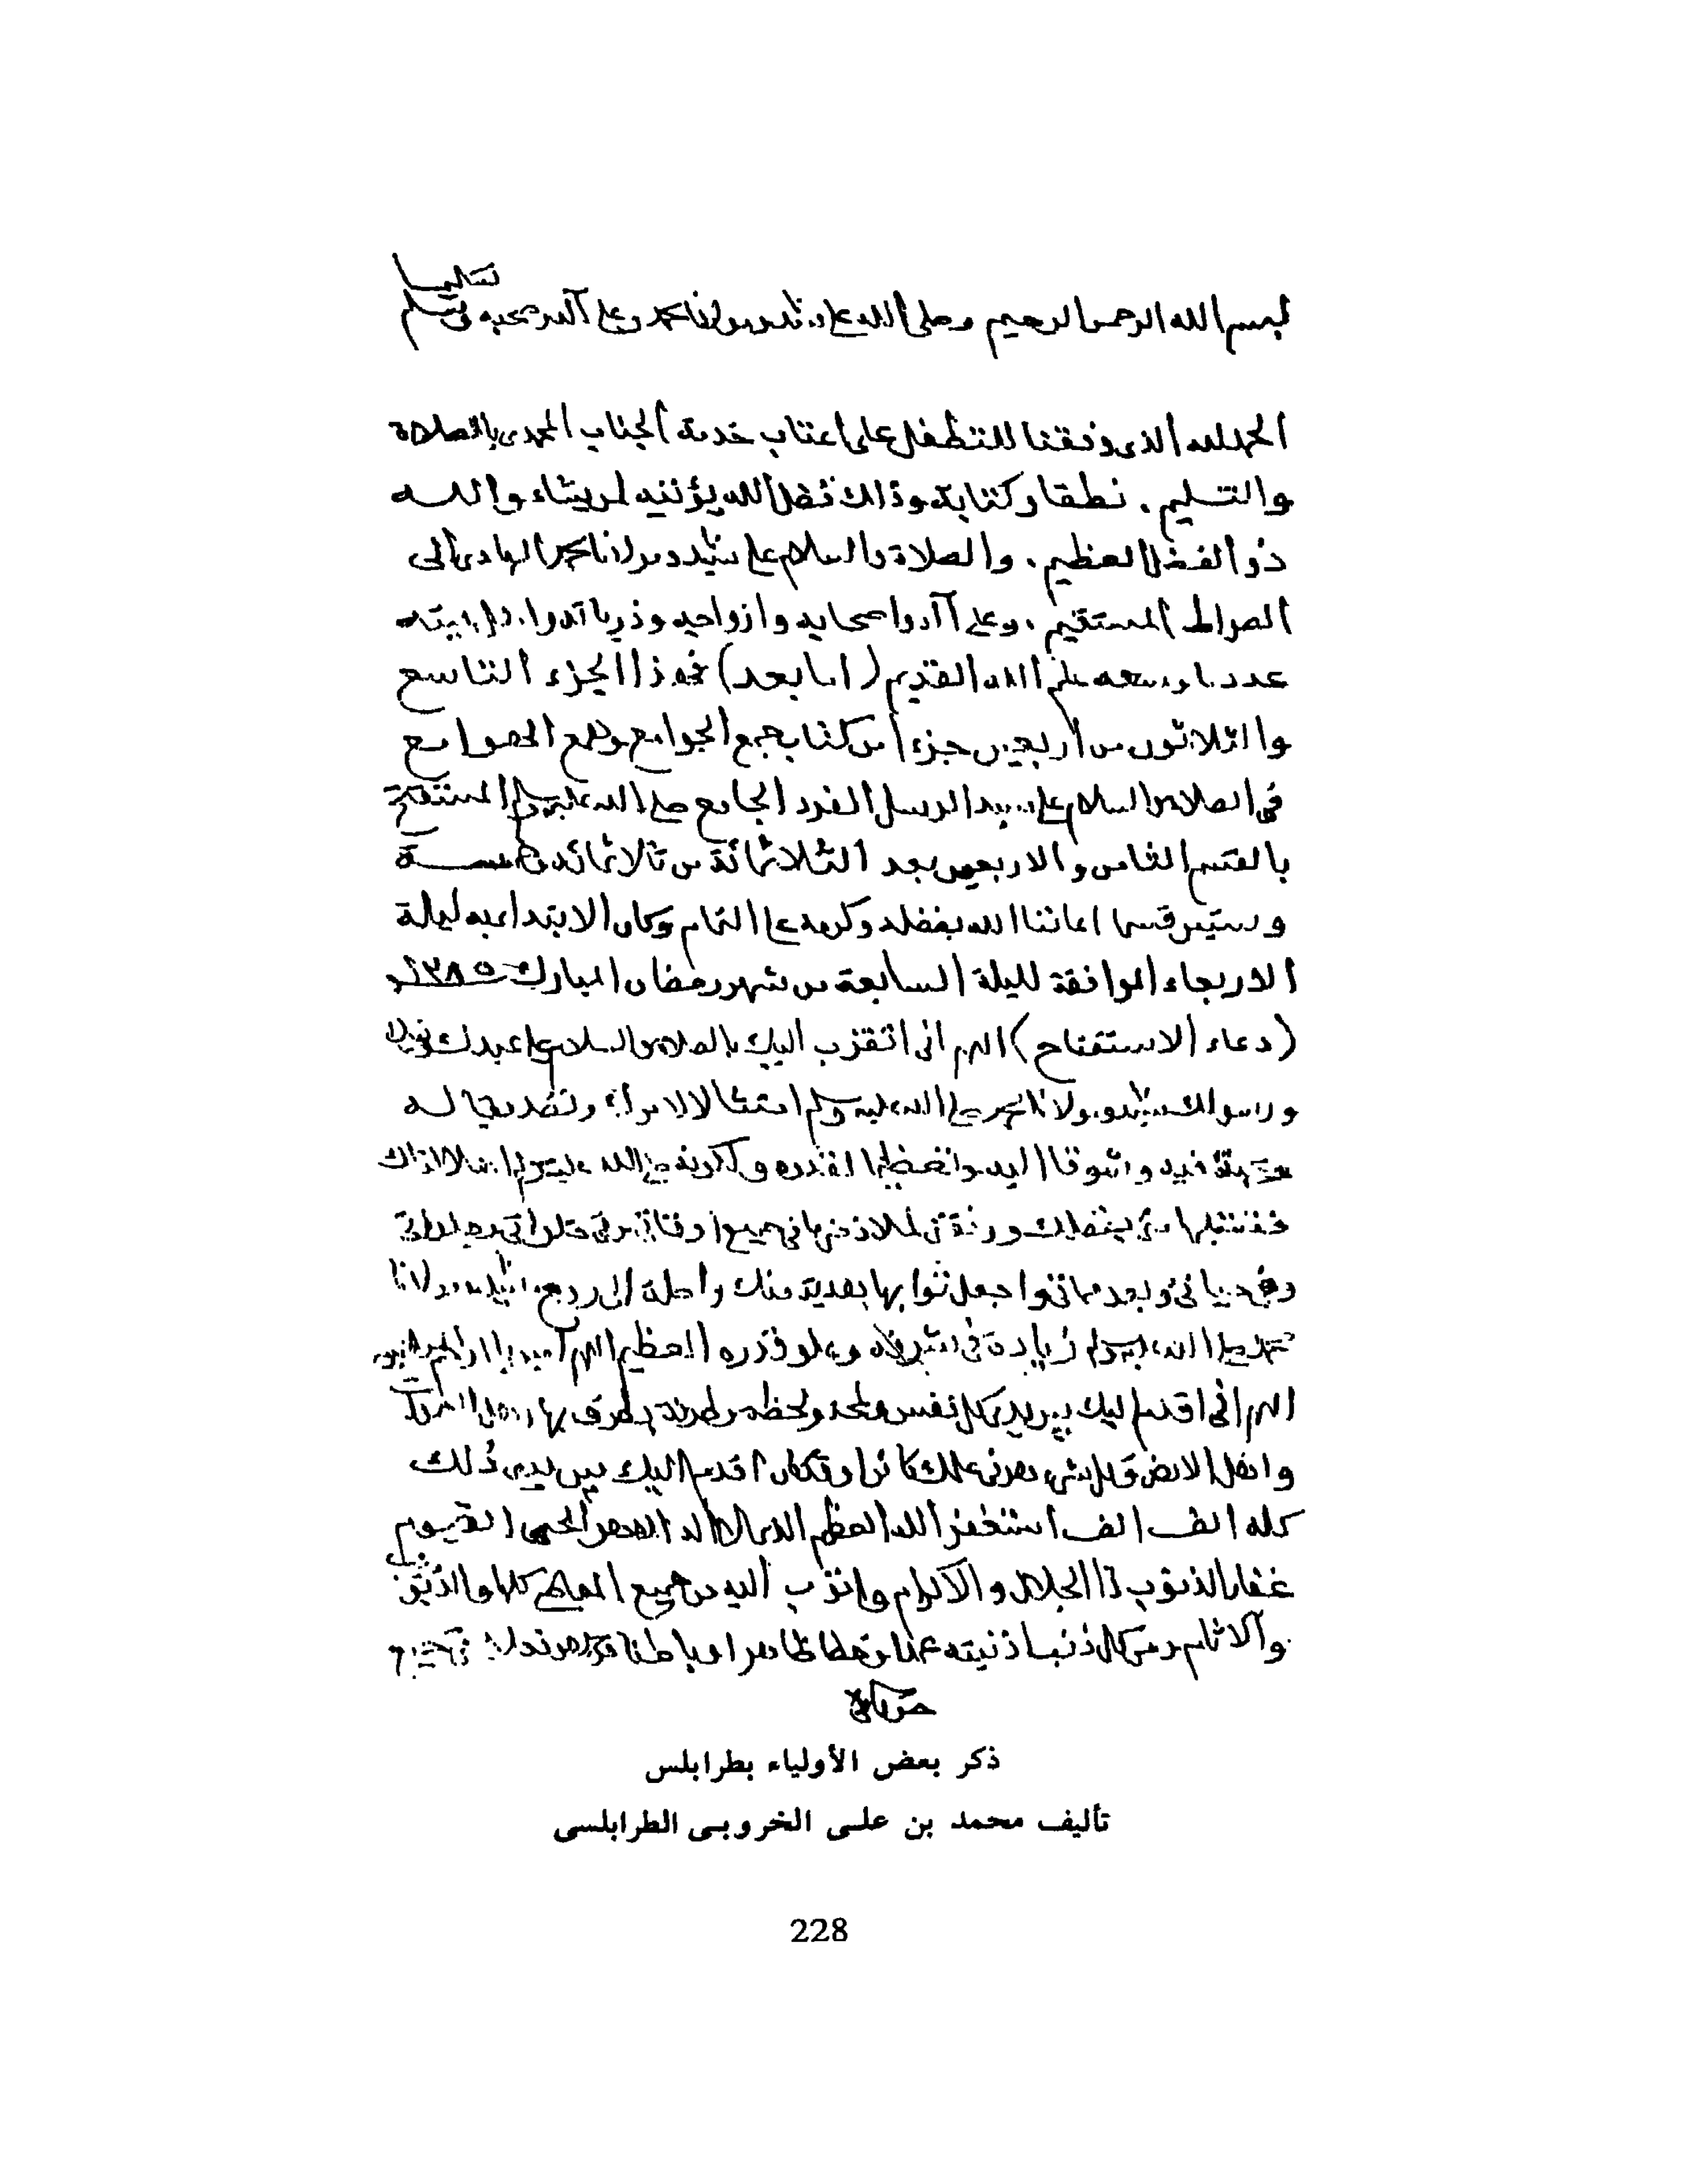 بسم الله الرحمن الرحيم وصلى الله على سيدنا ومولانا محمد وعلى آله وصحبه وسلم
تسليما
الحمد لله الذى وفقنا للتطفل على اعتاب خدمة الجناب المحمدى بالصلاة
والتسليم . نطقا وكتابة وذالك فضل الله يؤتيه لمن يشاء والله
ذو الفضل العظيم . والصلاة والسلام على سيدنا ومولانا محمد الهادى إلى
الصراط المستقيم . وعلى آله واصحابه وازواجه وذرياته واهل بيته
عدد ما وسعه علم الله القديم (اما بعد) فهذا الجزء التاسع
والثلاثون من أربعين جزءا من كتاب جمع الجوامع وهمع الهوامع
فى الصلاة والسلام على سيد الرسل الفرد الجامع صلى الله عليه وسلم المستفتح
بالقسم الثامن والاربعين بعد الثلاثمائة من ثلاثمائة وخمسة
وستين قسما اعاننا الله بفضله وكرمه على التمام وكان الابتداء به ليلة
الاربعاء الموافقة لليلة السابعة من شهر رمضان المبارك ١٣٨٥
(دعاء الاستفتاح) اللهم انى اتقرب اليك بالصلاة والسلام على عبدك ونبيك
ورسولك سيدنا ومولانا محمد صلى الله عليه وسلم امتثالا لامرك وتصديقا له
ومحبة فيه وشوقا اليه وتعظيما لقدره صلى الله عليه وسلم
فتقبلها منى بفضلك فى جميع اوقاتى
وفى حياتى وبعد مماتى واجعل ثوابها هدية منك واصلة الى روح سيدنا ومولانا
محمد صلى الله عليه وسلم زيادة فى شرفه وعلو قدره العظيم اللهم آمين
اللهم انى اقدم اليك بين يدى كل نفس ولمحة ولحظة وطرفة يطرف بها اهل السموات
واهل الارض وكل شىء هو فى علمك كائن او قد كان اقدم اليك بين يدى ذلك
كله الف الف استغفر الله العظيم الذى لا اله الا هو الحى القيوم
غفار الذنوب ذا الجلال والاكرام واتوب اليه من جميع المعاصى كلها والذنوب
والآثام ومن كل ذنب اذنبته عمدا وخطا ظاهرا وباطنا
حركاتى
ذكر بعض الأولياء بطرابلس
تأليف محمد بن علي الخروبي الطرابلسي
228